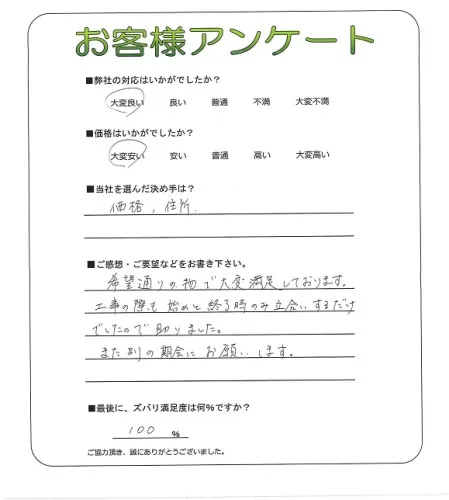 お客様アンケート
■弊社の対応はいかがでしたか?
大変良い 良い 普通 不満 大変不満
■価格はいかがでしたか?
大変安い 安い 普通 高い 大変高い
■当社を選んだ決め手は?
価格,住所.
■ご感想・ご要望などをお書き下さい。
希望通りの物で大変満足しております。
工事の際も始めと終了時のみ立合いするだけ
でしたので助りました。
また別の期会にお願いします。
■最後に、ズバリ満足度は何%ですか?
100 %
ご協力頂き、誠にありがとうございました。